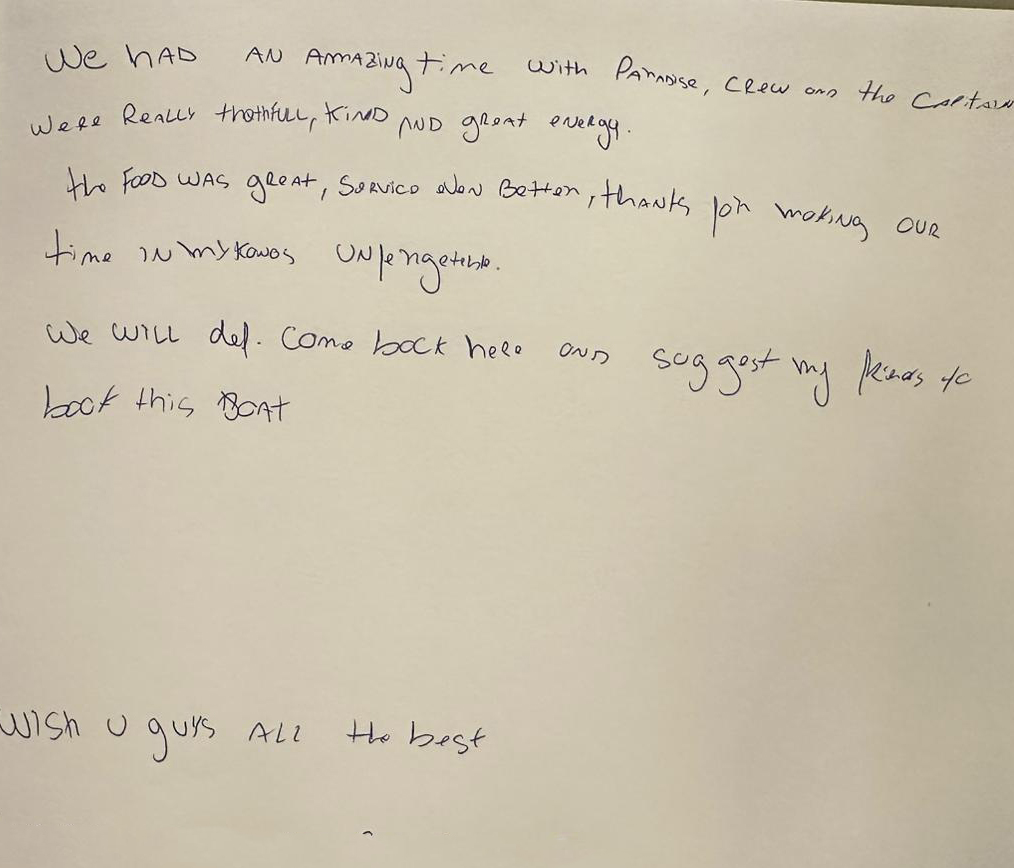 We had an amazing time with Paradise, crew and the Capitain
were Really thothfull, kind and great energy.
the food was great, service even Better, thanks for making our
time in mykonos unfergeteble.
We will def. come back here and suggest my friends to
book this Boat
Wish u guys all the best